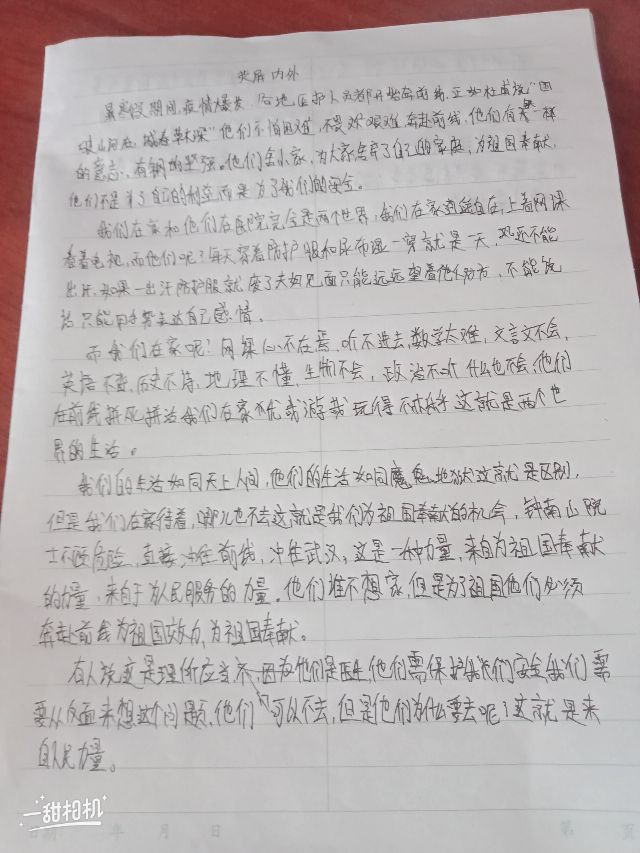 荧屏内外
寒假期间,疫情爆发,各地医护人员都开始奔前线,正如杜甫说"国
破山河在,城春草木深"他们不怕困难,不畏艰难,奔赴前线,他们有一样
的意志,有钢的坚强。他们舍小家,为大家舍弃了自己的家庭,为祖国奉献,
他们不是为了自己的利益而是为了我们的安全。
我们在家和他们在医院完全是两个世界,我们在家逍遥自在,上着网课
看着电视,而他们呢?每天穿着防护服和尿布湿一穿就是一天,还不能
出汗,如果一出汗防护服就废了夫妇见面只能远远望着他们对方,不能说
话只能用手势表达自己感情。
而我们在家呢?网课心不在焉,听不进去,数学太难,文言文不会,
英语不查,历史不背,地理不懂,生物不会,政治不听什么也不会,他们
在前线拼死拼活我们在家游戏玩得不亦乐乎这就是两个世
界的生活。
我们的生活如同天上人间,他们的生活如同魔鬼地狱这就是区别,
但是我们在家待着,哪儿也不去这就是我们为祖国奉献的机会,钟南山院
士不顾危险,直接冲往前线,冲往武汉,这是一种力量,来自为祖国奉献
的力量,来自于为人民服务的力量。他们谁不想家,但是为了祖国他们必须
奔赴前线为祖国效力,为祖国奉献。
有人说这是理所应当,因为他们是医生,他们需保护我们安全我们需
要从反面来想这个问题,他们可以不去,但是他们为什么要去呢?这就是来
自人民力量。
一甜相机
年 月 日
第 页